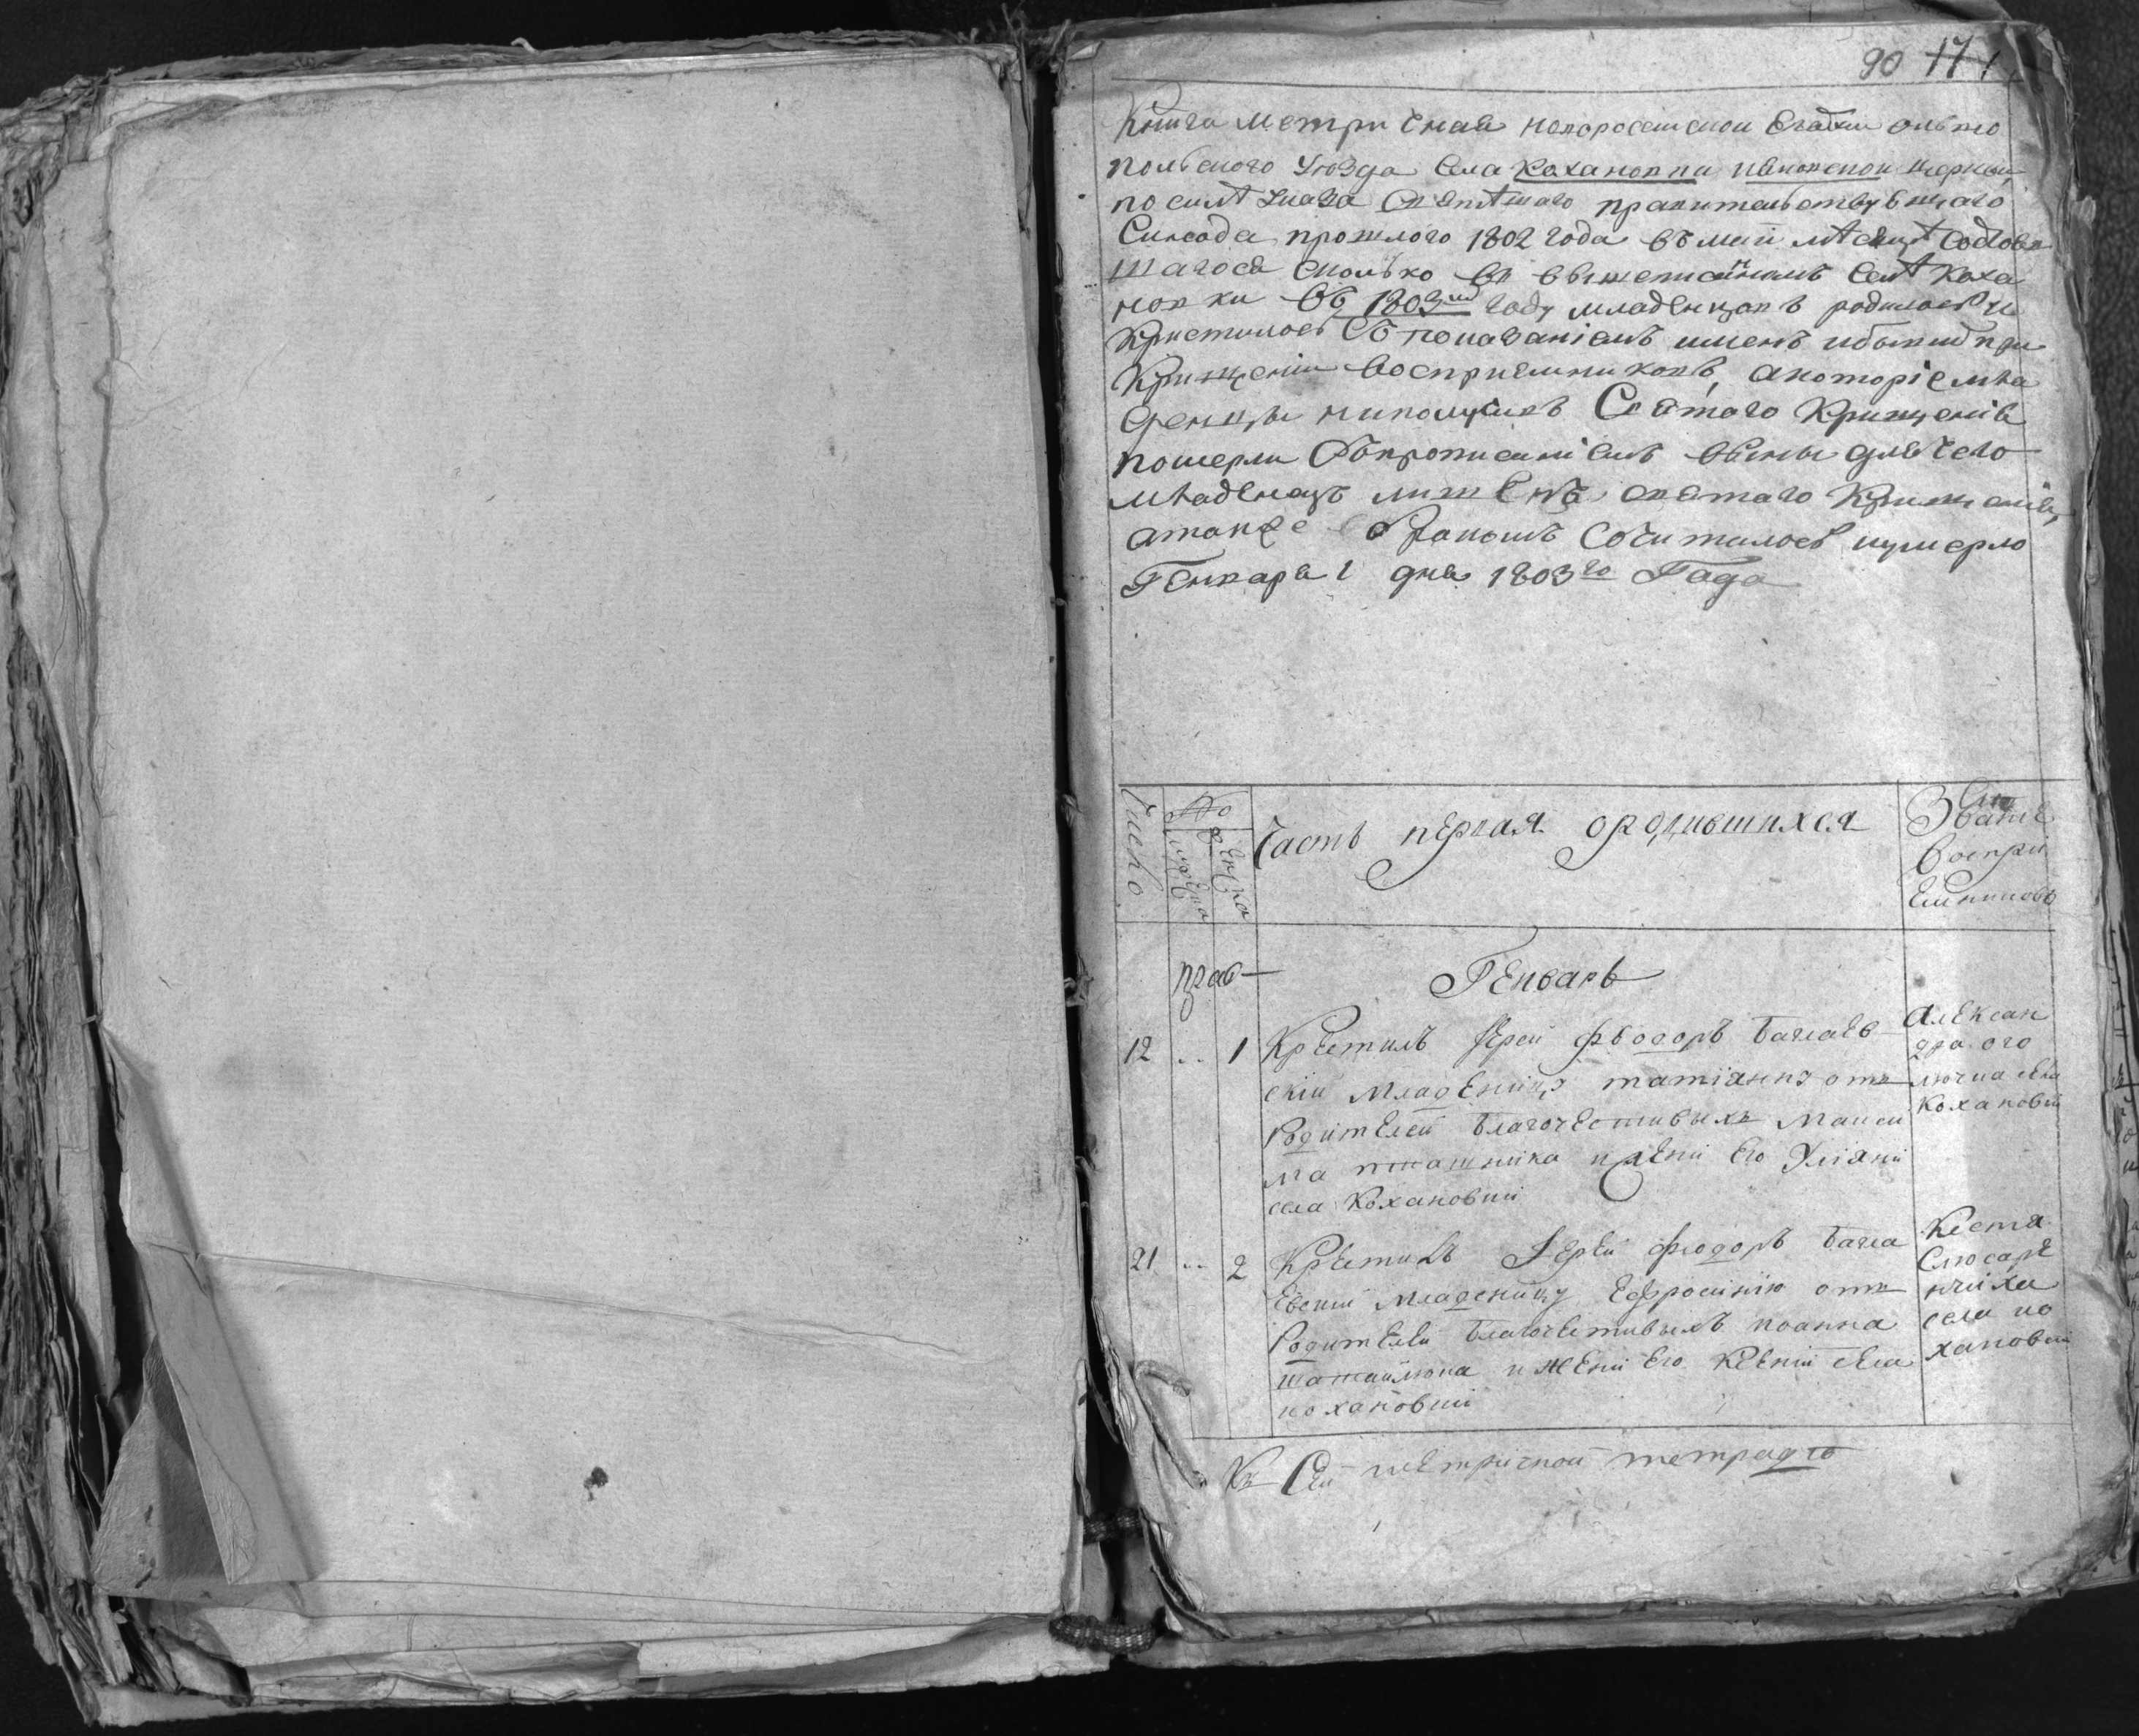 90 17 1
Книга метричная новоросейской Епархии ольво
польского уѣзда села Кохановки церкви
по силѣ Указа Святѣшаго правительствующаго
Синода прошлого 1802 года въ маѣ мѣсяцѣ состояв
шагося сколько въ вышеписанномъ селѣ Коха
новки въ 1803 году младенцовъ родилось и
Кристилось съ показаніемъ именъ и бывшихъ при
Крищеніи воспріемниковъ, а которіе мла
денцы ниполучивъ Святаго Крищенія
померли съ прописаніемъ вѣны для чего
младенецъ лишенъ святаго Крищенія,
атакже бракомъ сочиталось и умерло
Генваря 1 дня 1803го Года
Число
№
Часть первая ородившихся
Званіе
воспри
емниковъ
Генварь
12 .. 1 Крестилъ Іерей Фьодоръ Бачаев
скій младеницу татіянну отъ
Родителей Благочестивыхъ Макси
ма и жени Его Уліяни
села Кохановки
Алексан
дра ого
села
Кохановки
21 .. 2 Крестилъ Іерей Фіодоръ Бача
евский младеницу Ефросинию отъ
Родителей Благочестивыхъ иоанна
и жени Его Ксении села
кохановки
Слюсаре
села ко
хановки
Къ Сей метричной тетрадѣ